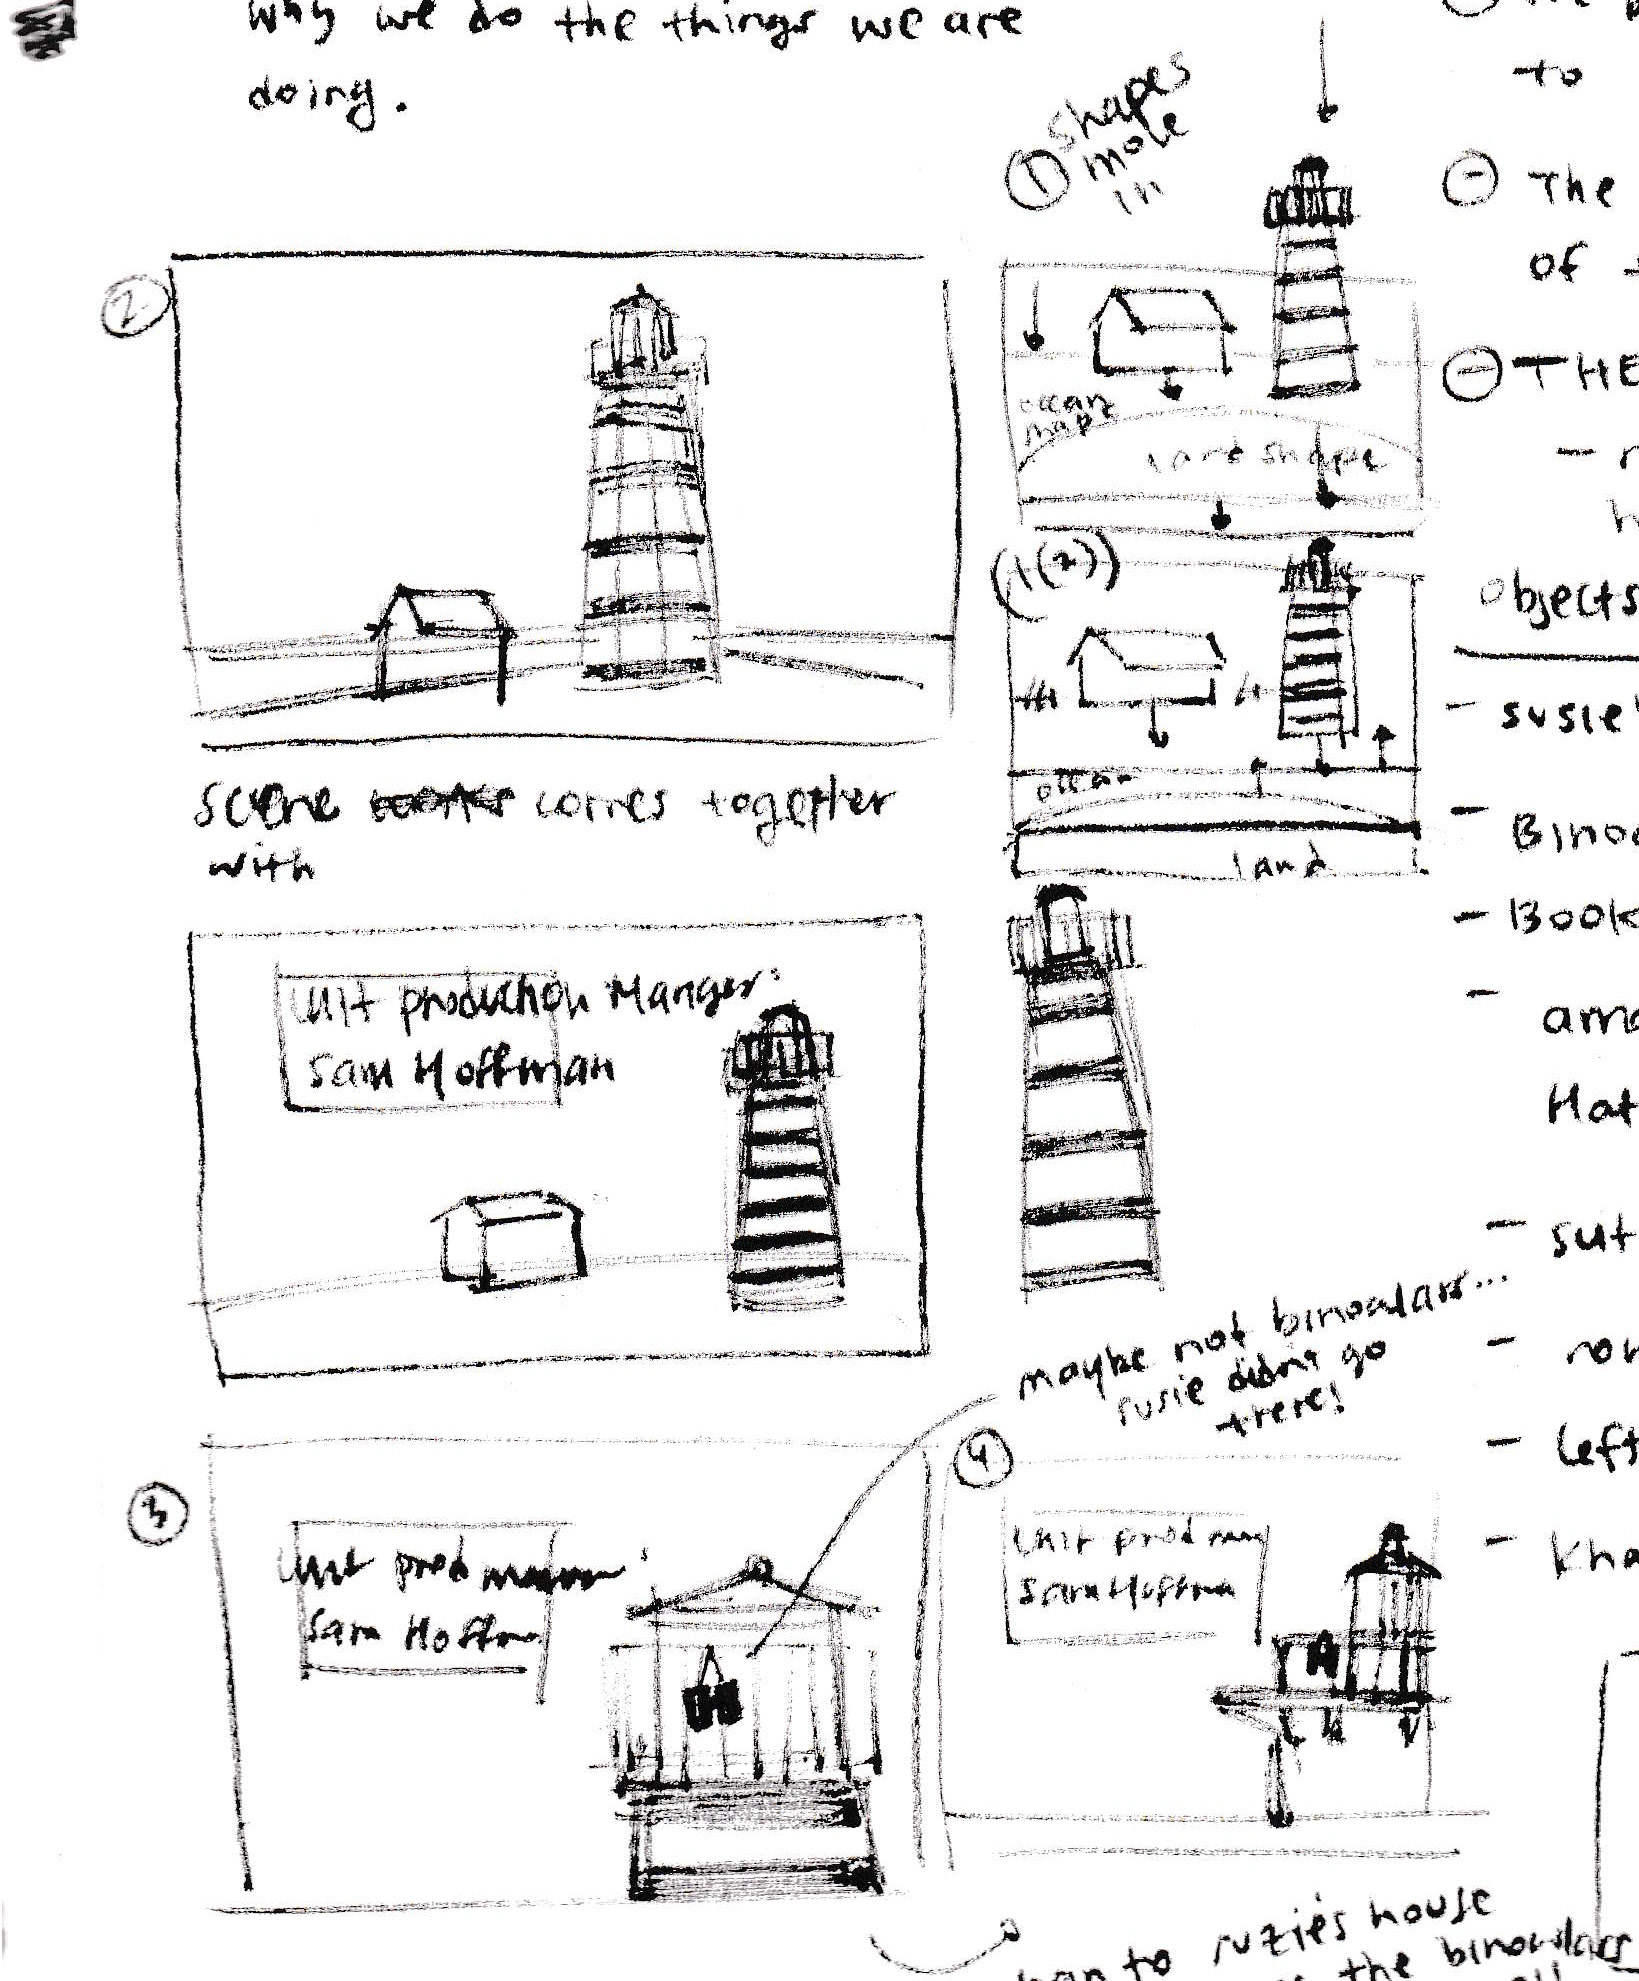 why we do the things we are
doing.
to
① shapes
move
in
⊖ The
of
②
⊖ THE
ocean
map
land shape
(1(2))
objects
- susie'
ocean
scene comes together
with
land
- Binoc
- Book
Unit production Manger:
Sam Hoffman
- ama
Hat
- sut
maybe not binoculars...
susie didn't go
there!
- left
③
④
unit prod manager:
Sam Hoffman
unit prod man
Sam Hoffman
- kha
pan to suzie's house
the binoculars